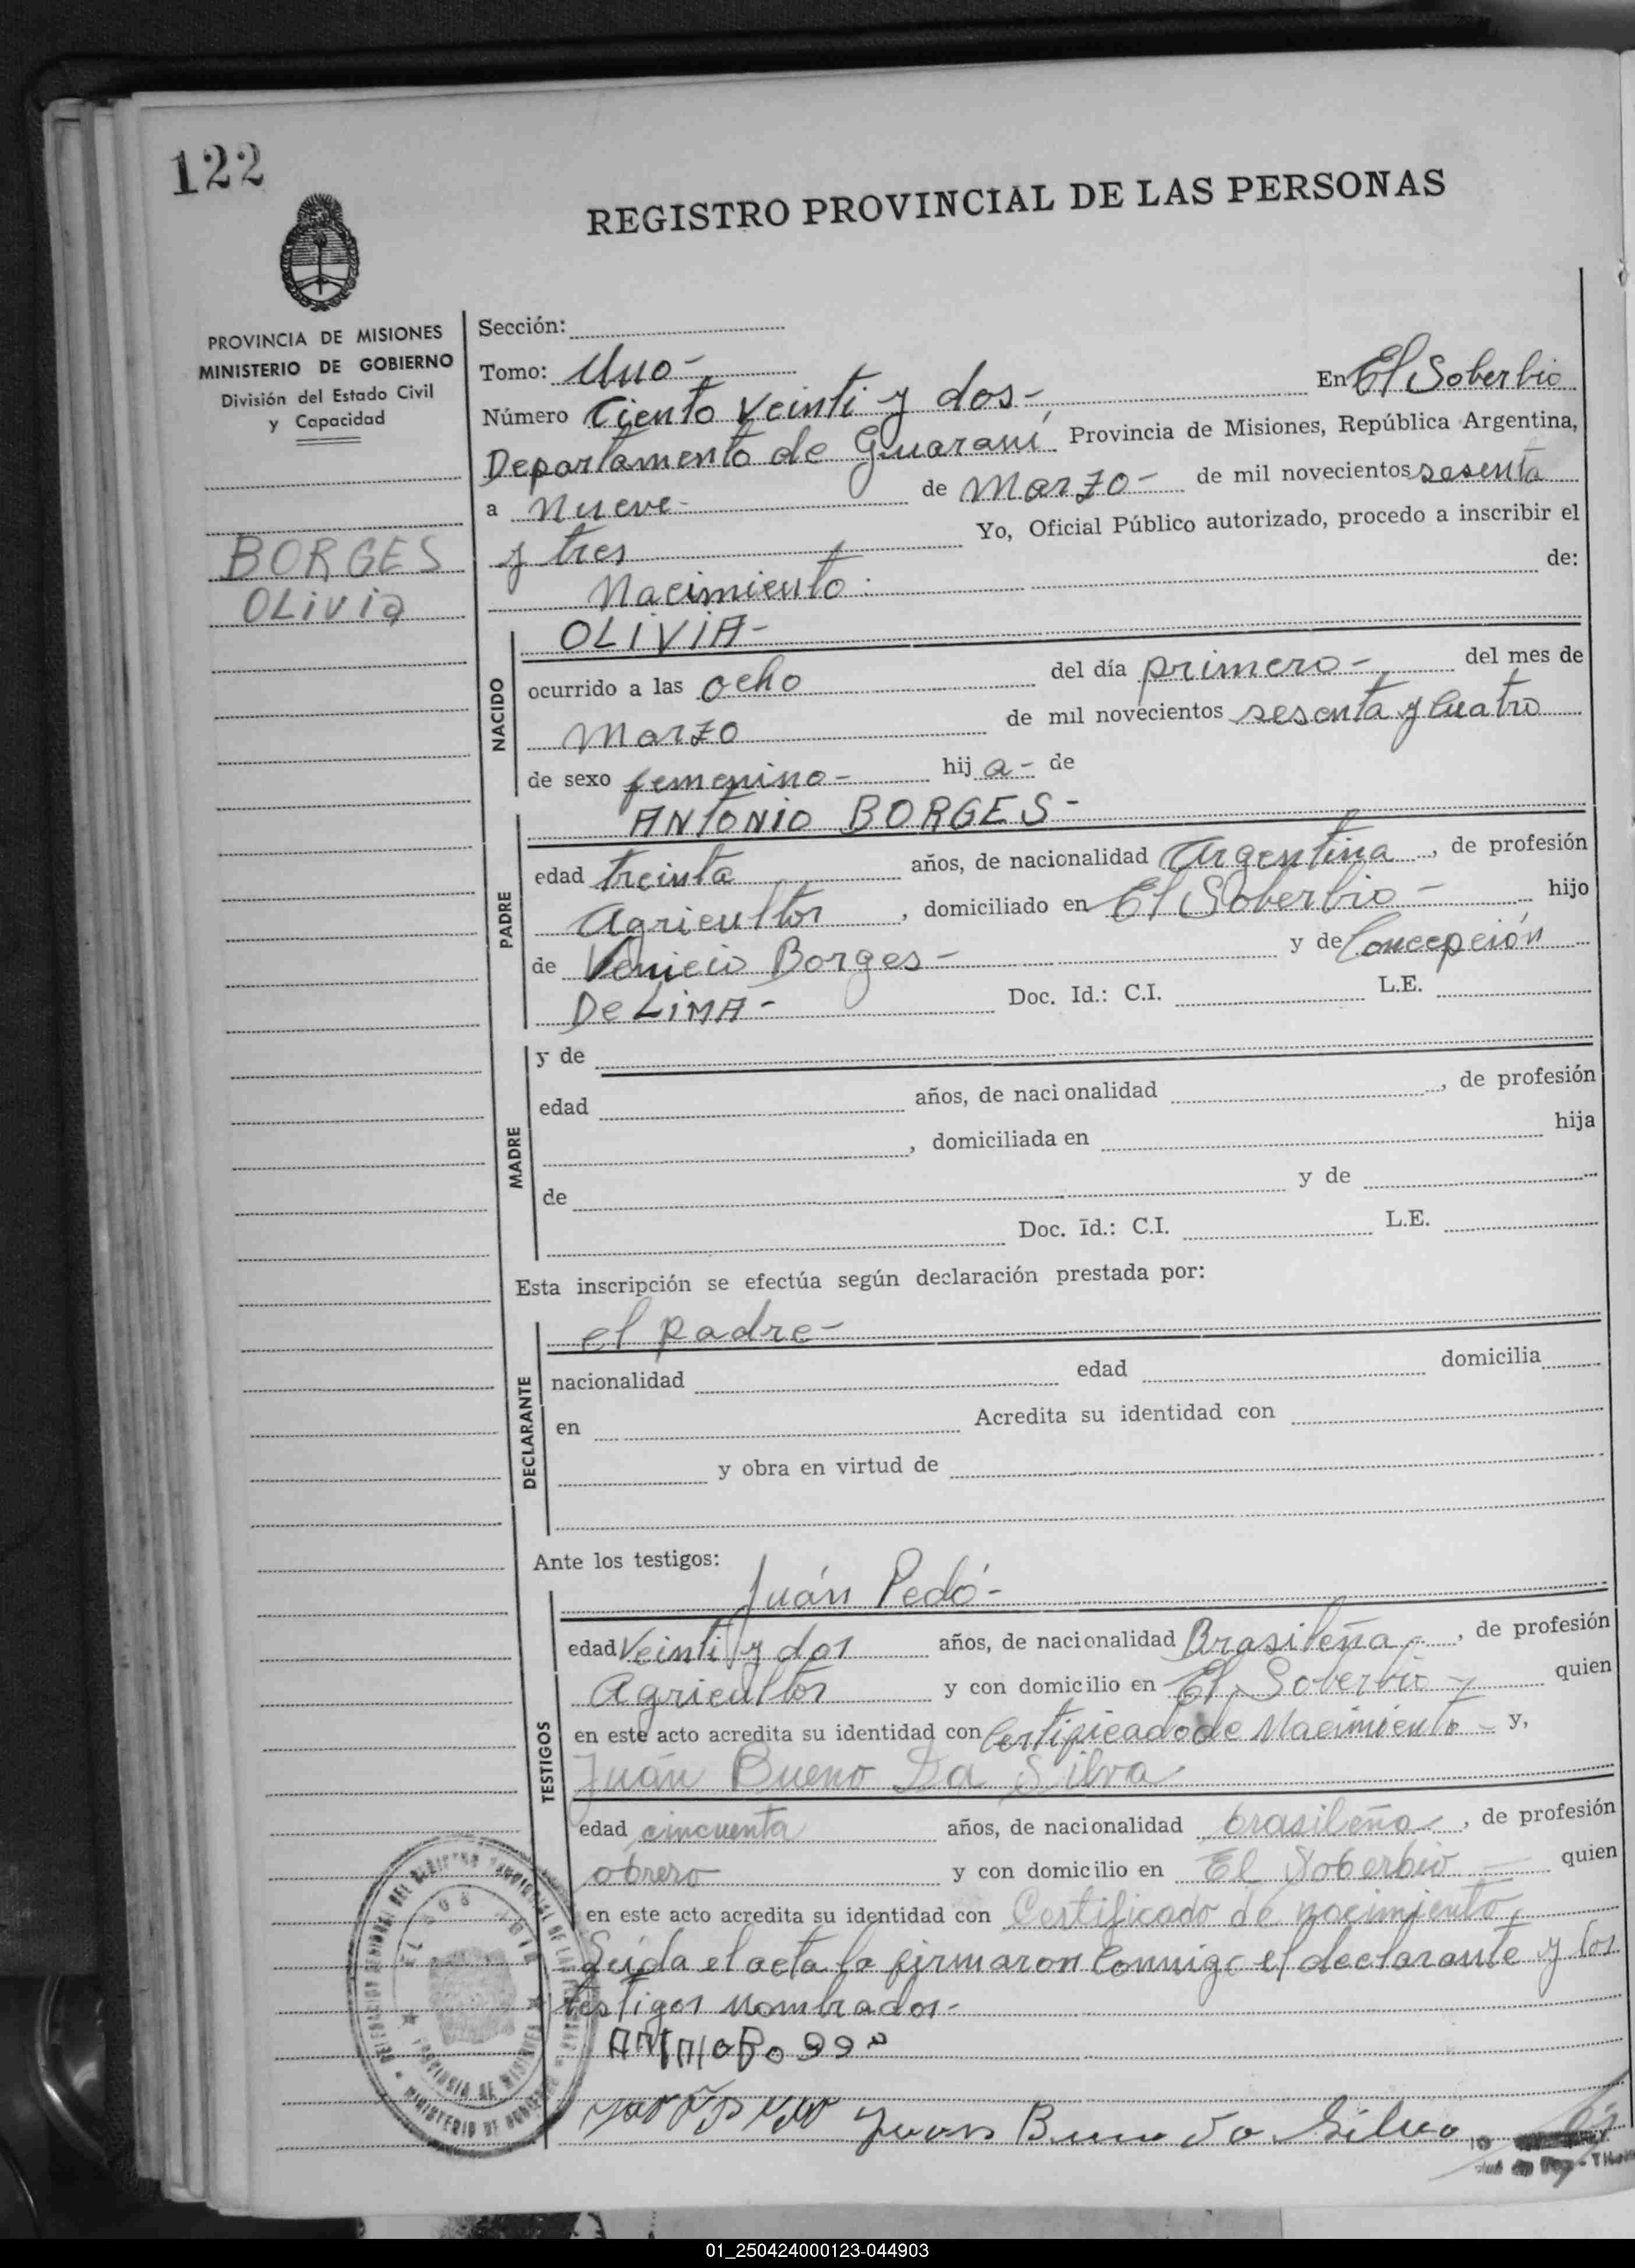 122
REGISTRO PROVINCIAL DE LAS PERSONAS
PROVINCIA DE MISIONES
MINISTERIO DE GOBIERNO
División del Estado Civil
y Capacidad
BORGES
OLiviA
Sección:
Tomo: Uno-
Número Ciento Veinti y dos-, En El Soberbio
Departamento de Guaraní Provincia de Misiones, República Argentina,
a Nueve- de Marzo- de mil novecientos sesenta
y tres Yo, Oficial Público autorizado, procedo a inscribir el
Nacimiento: de:
NACIDO
OLIVIA-
ocurrido a las ocho del día primero- del mes de
Marzo de mil novecientos sesenta y cuatro
de sexo femenino- hij a- de
PADRE
ANTONIO BORGES-
edad treinta años, de nacionalidad Argentina, de profesión
Agricultor, domiciliado en El Soberbio- hijo
de Venicio Borges- y de Concepción
De LiMA- Doc. Id.: C.I. L.E.
MADRE
y de
edad años, de nacionalidad , de profesión
, domiciliada en hija
de y de
Doc. Id.: C.I. L.E.
Esta inscripción se efectúa según declaración prestada por:
DECLARANTE
el padre-
nacionalidad edad domicilia
en Acredita su identidad con
y obra en virtud de
Ante los testigos:
TESTIGOS
Juán Pedó-
edad Veinti y dos años, de nacionalidad Brasileña-, de profesión
Agricultor y con domicilio en El Soberbio- quien
en este acto acredita su identidad con Certificado de Nacimiento- y,
Juán Bueno Da Silva
edad cincuenta años, de nacionalidad brasileña, de profesión
obrero y con domicilio en El Soberbio- quien
en este acto acredita su identidad con Certificado de nacimiento,
Leida el acta la firmaron conmigo el declarante y los
testigos nombrados-
EL SOBERBIO
PROVINCIA DE MISIONES
MINISTERIO DE GOBIERNO
Juan Bueno da Silva
01_250424000123-044903